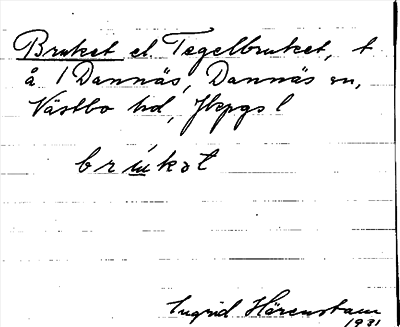 Bruket el. Tegelbruket, t
å 1 Dannäs, Dannäs sn,
Västbo hd, Jkpgs l
Ingrid Hörenstam
1931